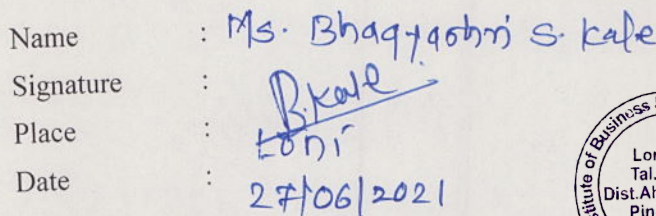 Name : Ms. Bhagyashri S. Kale
Signature : B.Kale
Place : Loni
Date : 27/06/2021
Institute of Business
Tal.
Dist.Ah
Pin